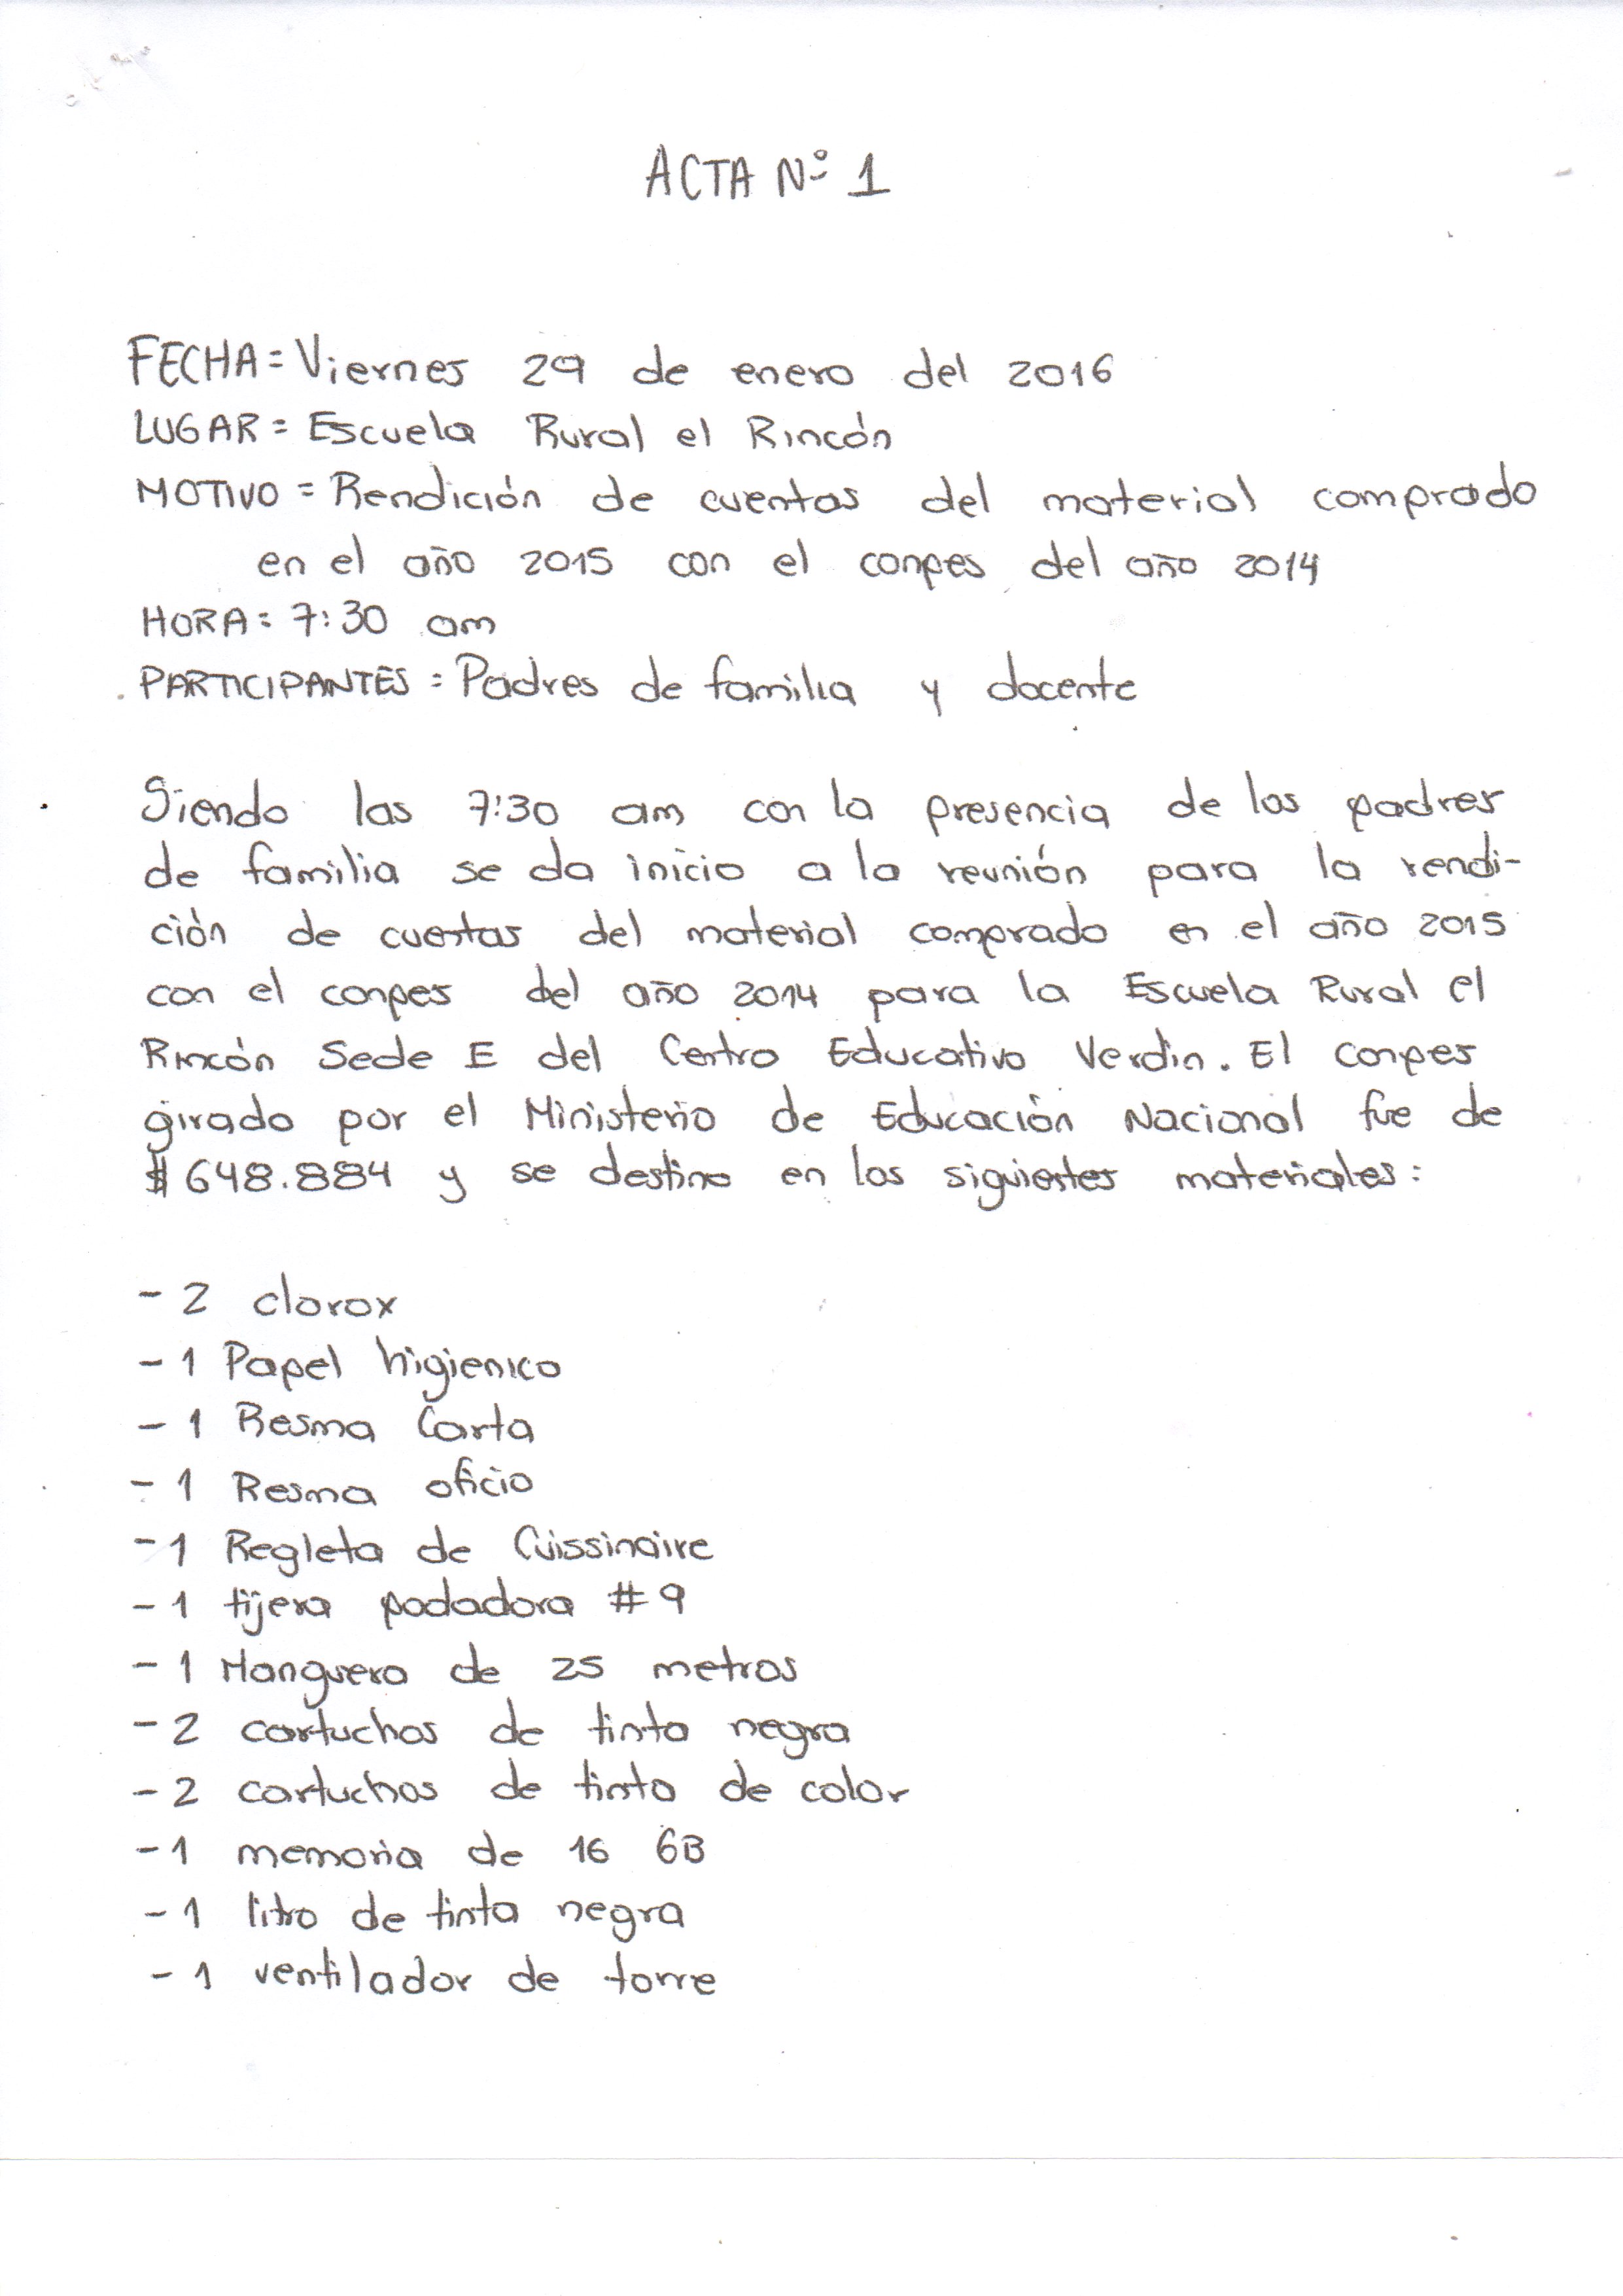 ACTA Nº 1
FECHA = Viernes 29 de enero del 2016
LUGAR = Escuela Rural el Rincón
MOTIVO = Rendición de cuentas del material comprado
en el año 2015 con el conpes del año 2014
HORA = 7:30 am
PARTICIPANTES = Padres de familia y docente
Siendo las 7:30 am con la presencia de los padres
de familia se da inicio a la reunión para la rendi-
ción de cuentas del material comprado en el año 2015
con el conpes del año 2014 para la Escuela Rural el
Rincón Sede E del Centro Educativo Verdin. El conpes
girado por el Ministerio de Educación Nacional fue de
$ 648.884 y se destino en los siguientes materiales:
- 2 clorox
- 1 Papel higienico
- 1 Resma Carta
- 1 Resma oficio
- 1 Regleta de Cuissinaire
- 1 tijera podadora # 9
- 1 Manguera de 25 metros
- 2 cartuchos de tinta negra
- 2 cartuchos de tinta de color
- 1 memoria de 16 GB
- 1 litro de tinta negra
- 1 ventilador de torre